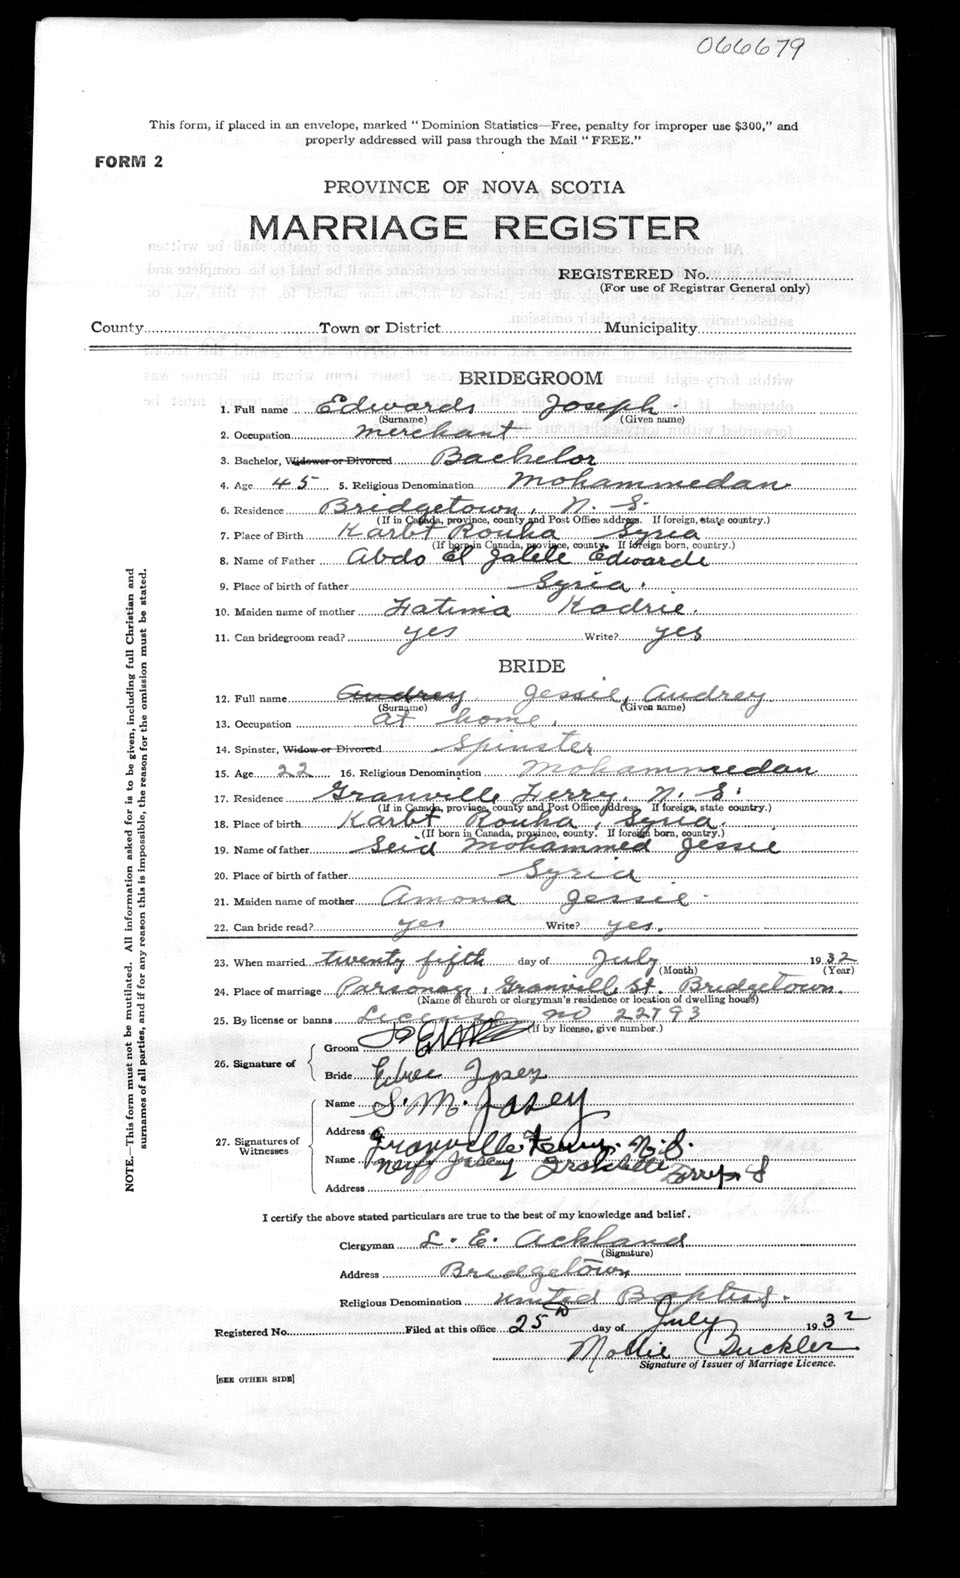 066679
This form, if placed in an envelope, marked "Dominion Statistics—Free, penalty for improper use $300," and
properly addressed will pass through the Mail "FREE."
FORM 2
PROVINCE OF NOVA SCOTIA
MARRIAGE REGISTER
REGISTERED No.
(For use of Registrar General only)
County Town or District Municipality
BRIDEGROOM
1. Full name Edwards, Joseph
(Surname) (Given name)
2. Occupation merchant
3. Bachelor, Widower or Divorced Bachelor
4. Age 45 5. Religious Denomination Mohammedan
6. Residence Bridgetown, N. S.
(If in Canada, province, county and Post Office address. If foreign, state country.)
7. Place of Birth Karbt Rouha Syria
(If born in Canada, province, county. If foreign born, country.)
8. Name of Father Abdo El Jalele Edwards
9. Place of birth of father Syria.
10. Maiden name of mother Fatima Kadrie.
11. Can bridegroom read? yes Write? yes
BRIDE
12. Full name Audrey Jessie, Audrey
(Surname) (Given name)
13. Occupation at home.
14. Spinster, Widow or Divorced Spinster
15. Age 22 16. Religious Denomination Mohammedan
17. Residence Granville Ferry, N. S.
(If in Canada, province, county and Post Office Address. If foreign, state country.)
18. Place of birth Karbt Rouha, Syria.
(If born in Canada, province, county. If foreign born, country.)
19. Name of father Seid Mohammed Jessie
20. Place of birth of father Syria
21. Maiden name of mother Amona Jessie
22. Can bride read? yes Write? yes.
23. When married twenty fifth day of July 1932
(Month) (Year)
24. Place of marriage Parsonage, Granville St. Bridgetown.
(Name of church or clergyman's residence or location of dwelling house)
25. By license or banns License no 22793
(If by license, give number.)
26. Signature of
Groom
Bride Josey
27. Signatures of
Witnesses
Name S. M. Josey
Address Granville Ferry. N. S.
Name Josey Ferry
Address
I certify the above stated particulars are true to the best of my knowledge and belief.
Clergyman L. E. Ackland
(Signature)
Address Bridgetown
Religious Denomination United Baptist.
Registered No. Filed at this office 25th day of July 1932
Mollie Buckler
Signature of Issuer of Marriage Licence.
[SEE OTHER SIDE]
NOTE.—This form must not be mutilated. All information asked for is to be given, including full Christian and
surnames of all parties, and if for any reason this is impossible, the reason for the omission must be stated.